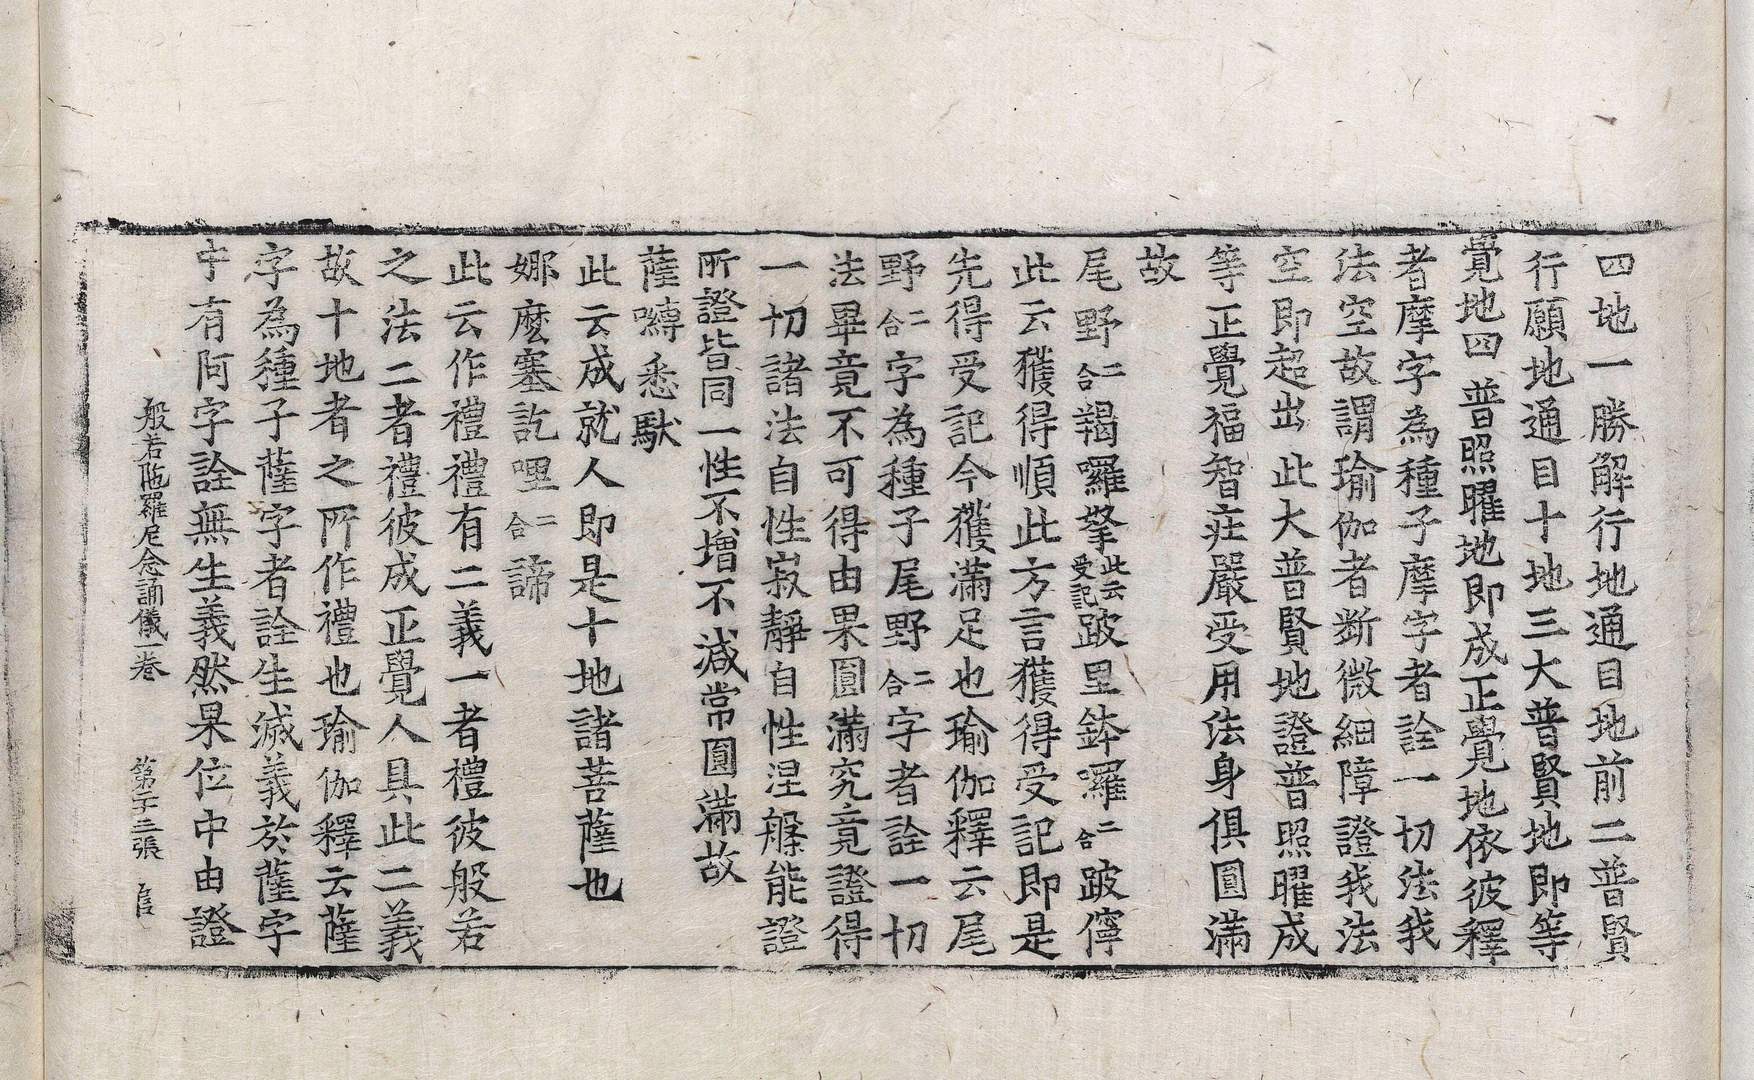 四地一勝解行地通目地前二普賢
行願地通目十地三大普賢地即等
覺地四普照曜地即成正覺地依彼釋
者摩字為種子摩字者詮一切法我
法空故謂瑜伽者斷微細障證我法
空即超出此大普賢地證普照曜成
等正覺福智莊嚴受用法身俱圓滿
故
尾野二合羯囉拏此云受記跛里鉢囉二合跛儜
此云獲得順此方言獲得受記即是
先得受記今獲滿足也瑜伽釋云尾
野二合字為種子尾野二合字者詮一切
法畢竟不可得由果圓滿究竟證得
一切諸法自性寂靜自性涅槃能證
所證皆同一性不增不減常圓滿故
薩嚩悉馱
此云成就人即是十地諸菩薩也
娜麼塞訖哩二合諦
此云作禮禮有二義一者禮彼般若
之法二者禮彼成正覺人具此二義
故十地者之所作禮也瑜伽釋云薩
字為種子薩字者詮生滅義於薩字
中有阿字詮無生義然果位中由證
般若陁羅尼念誦儀一卷 第二十三張